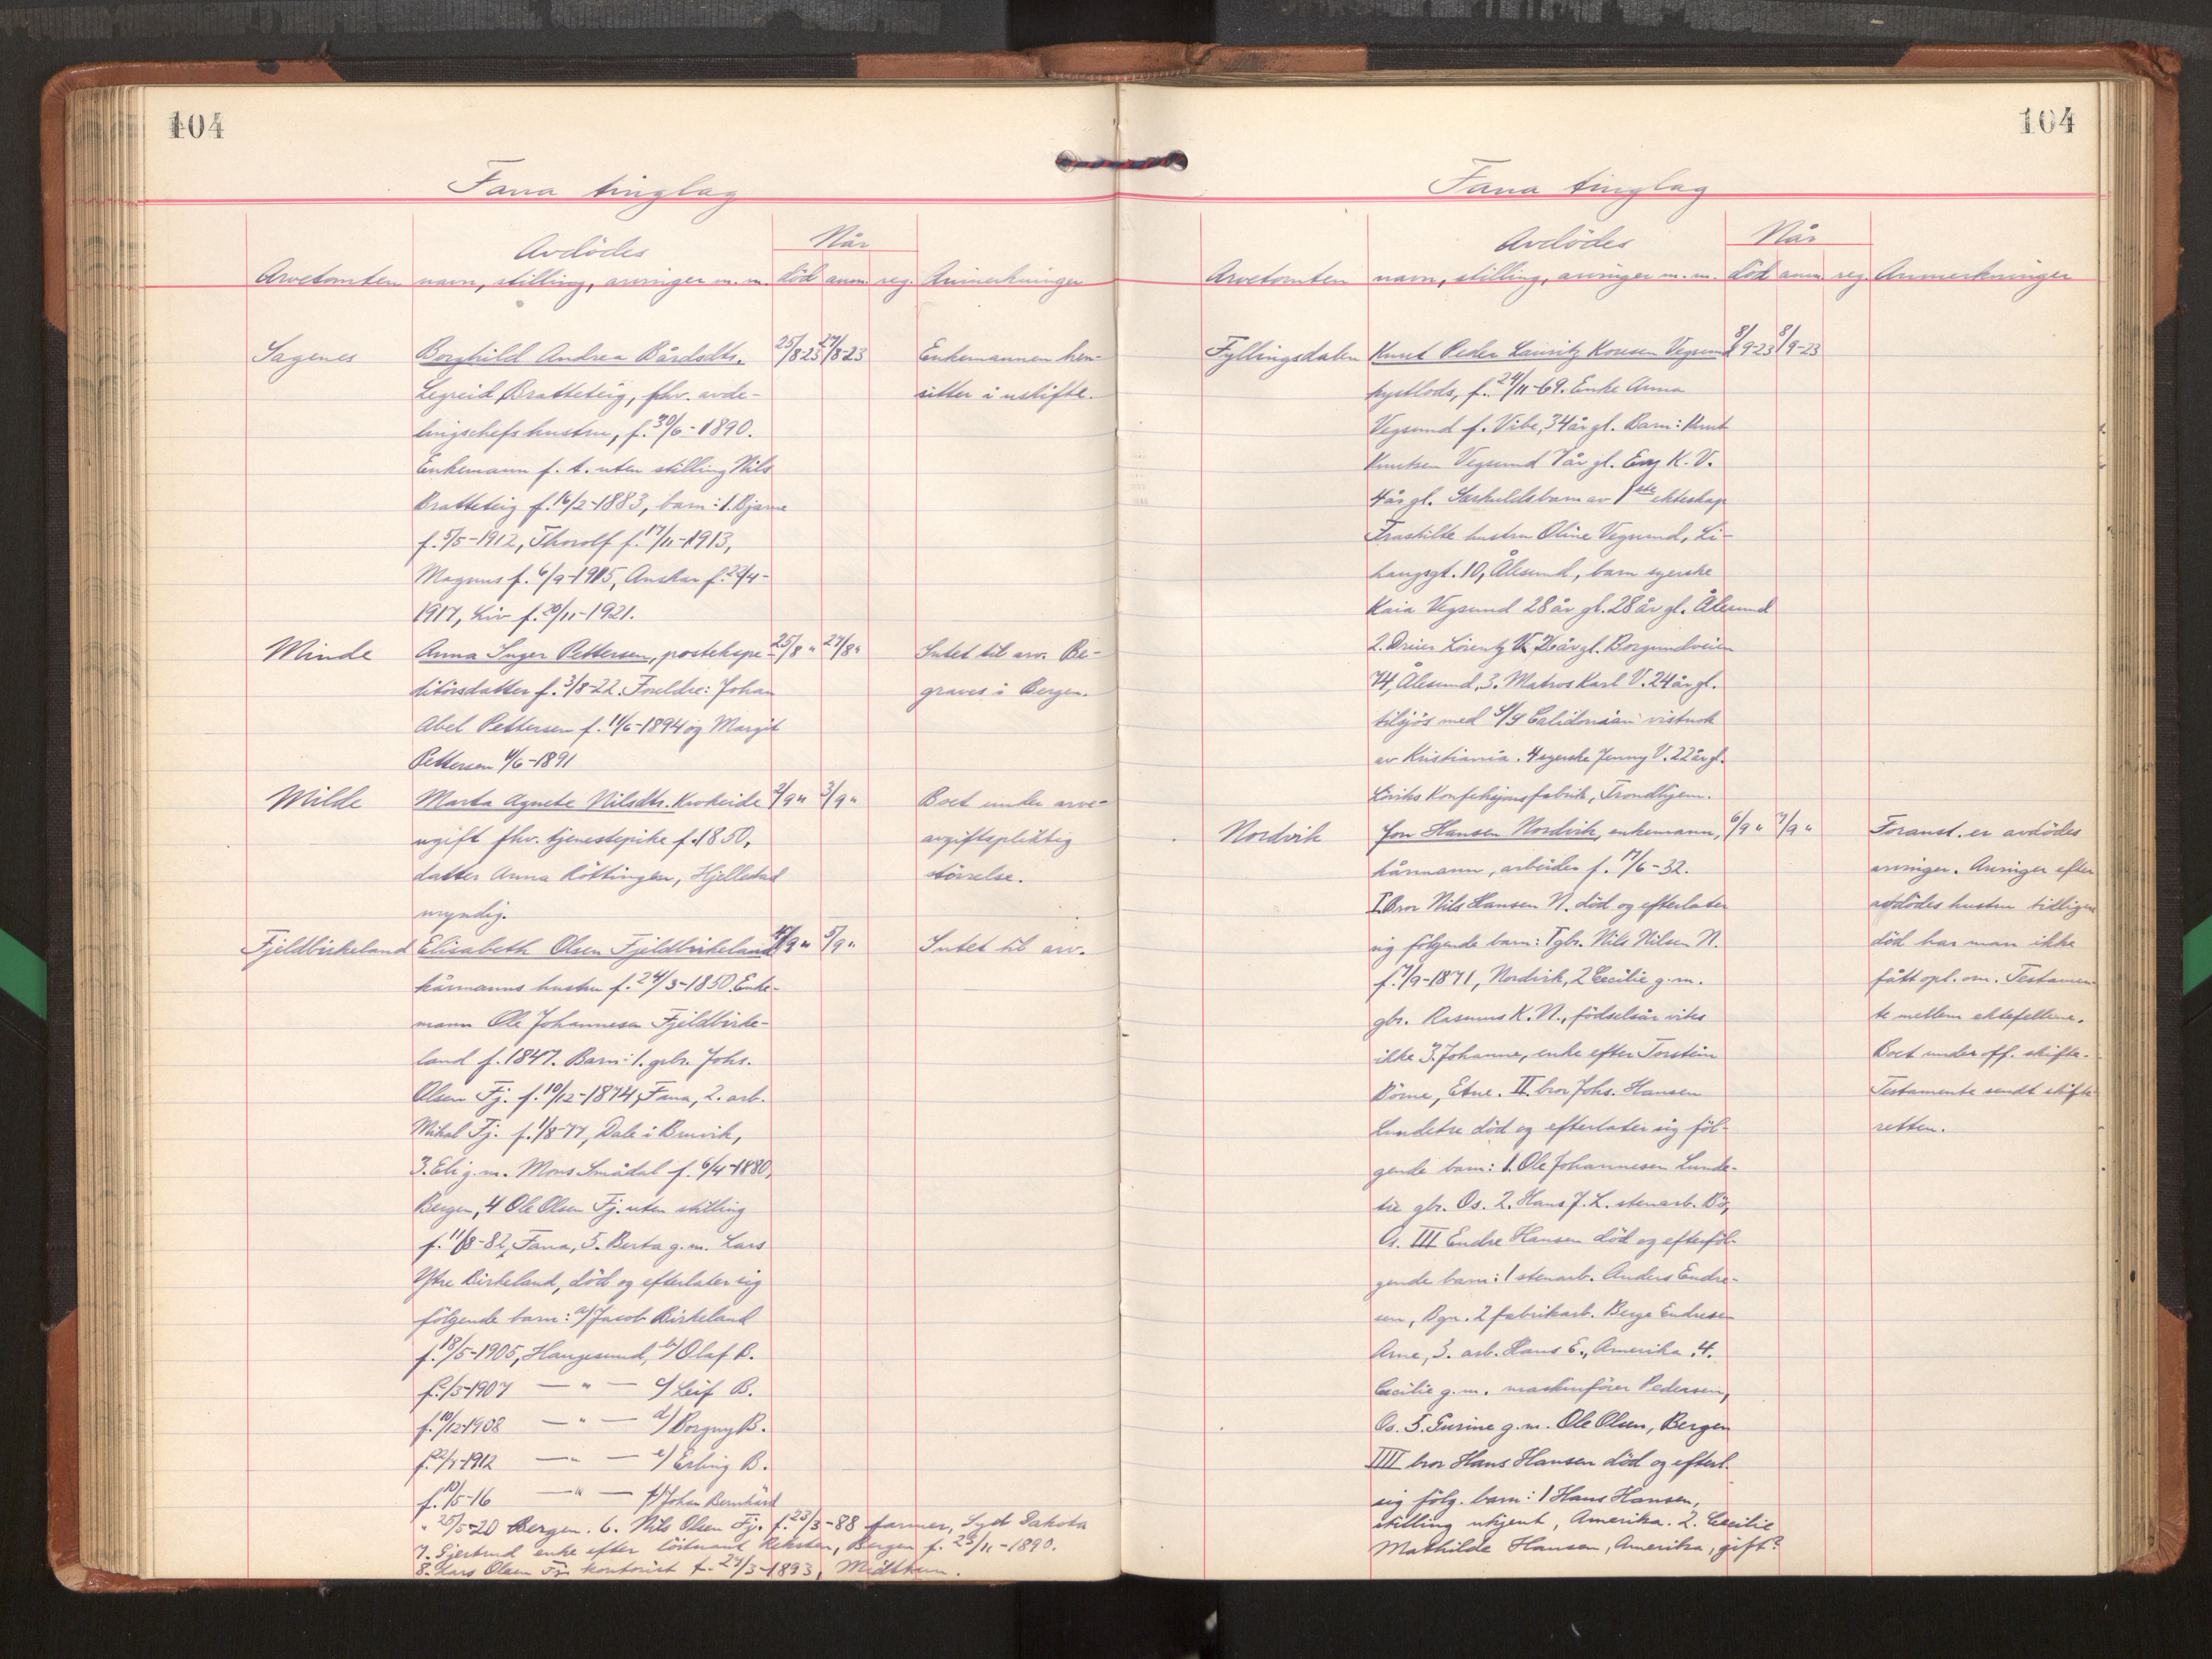 104
Fana tinglag
Avdödes
Når
Arvetomten navn, stilling, arvinger m. m. död anm. reg. Anmerkninger
Sagenes Borghild Andrea Bårdsdtr. 25/8-23 27/8-23 Enkemannen hen-
Legreid Bratteteig, fhv. avde- sitter i uskifte.
lingschefs hustru, f. 30/6-1890.
Enkemann f. t. uten stilling Nils
Bratteteig f. 16/2-1883, barn: 1. Bjarne
f. 5/5-1912, Thorolf f. 17/11-1913,
Magnus f. 6/9-1915, Anskar f. 29/4-
1917, Liv f. 20/11-1921.
Minde Anna Inger Pettersen, postekspe- 25/8 " 27/8 " Intet til arv. Be-
ditörsdatter f. 3/8-22. Foreldre: Johan graves i Bergen.
Abel Pettersen f. 11/6-1894 og Margit
Pettersen 4/6-1891
Milde Marta Agnete Nilsdtr. Krokeide 2/9 " 3/9 " Boet under arve-
ugift fhv. tjenestepike f. 1850, avgiftspliktig
datter Anna Röttingen, Hjellestad störrelse.
myndig.
Fjeldbirkeland Elisabeth Olsen Fjeldbirkeland 4/9 " 5/9 " Intet til arv.
kårmanns hustru f. 24/3-1850. Enke-
mann Ole Johannesen Fjeldbirke-
land f. 1847. Barn: 1. gbr. Johs.
Olsen Fj. f. 10/12-1874, Fana, 2. arb.
Mikal Fj. f. 1/8-77, Dale i Bruvik,
3. Eli g.m. Mons Smådal f. 6/4-1880,
Bergen, 4 Ole Olsen Fj. uten stilling
f. 11/8-82, Fana, 5. Berta g.m. Lars
Ytre Birkeland, död og efterlater sig
fölgende barn: a/ Jacob Birkeland
f. 18/5-1905, Haugesund, b/ Olaf B.
f. /3-1907 — " — c/ Leif B.
f. 10/12-1908 — " — d/ Borgny B.
f. 22/ -1912 — " — e/ Erling B.
f. 10/5-16 — " — f/ Johan Bernhard
" 25/5-20 Bergen. 6. Nils Olsen Fj. f. 23/3-88 farmer, Syd Dakota
7. Gjertrud enke efter löitnant Reksten, Bergen f. 29/11-1890.
8. Lars Olsen Fj. kontorist f. 27/3-1893, Midttun.
104
Fana tinglag
Avdödes
Når
Arvetomten navn, stilling, arvinger m. m. död anm. reg. Anmerkninger
Fyllingsdalen Knut Peder Lauritz Vegsund 8/9-23 8/9-23
kystlods, f. 24/11-69. Enke Anna
Vegsund f. Vibe, 34 år gl. Barn: Knut
Knutsen Vegsund 7 år gl. K. V.
4 år gl. Særkuldsbarn av 1ste ekteskap
Fraskilte hustru Oline Vegsund, Li-
haugsgt. 10, Ålesund, barn syerske
Kaia Vegsund 28 år gl. 28 år gl. Ålesund
2. Dreier Lorentz V. 26 år gl. Borgundveien
74, Ålesund, 3. Matros Karl V. 24 år gl.
tilsjös med S/S Calidonian vistnok
av Kristiania. 4 syerske Jenny V. 22 år gl.
Konfeksjonsfabrik, Trondhjem.
Nordvik Jon Hansen Nordvik, enkemann, 6/9 " 7/9 " Foranst. er avdödes
kårmann, arbeider f. 17/6-32. arvinger. Arvinger efter
I. Bror Nils Hansen N. död og efterlater avdödes hustru tidligere
sig fölgende barn: 1 gbr. Nils Nilsen N. död har man ikke
f. 7/9-1871, Nordvik, 2 Cecilie g.m. fått opl. om. Testamen-
gbr. Rasmus K. N., födselsår vites te mellem ektefellene.
ikke 3. Johanne, enke efter Torstein Boet under off. skifte.
Börne, Etne. II. bror Johs. Hansen Testamente sendt skifte-
Lundetre död og efterlater sig föl- retten.
gende barn: 1. Ole Johannesen Lunde-
tre gbr. Os. 2. Hans J. L. stenarb. Bö,
Os. III Endre Hansen död og efterföl-
gende barn: 1 stenarb. Anders Endre-
sen, Bgn. 2 fabrikarb. Berge Endresen
Arne, 3. arb. Hans E., Amerika. 4.
Cecilie g.m. maskinförer Pedersen,
Os. 5. Gurine g.m. Ole Olsen, Bergen
IIII bror Hans Hansen död og efterl.
sig fölg. barn: 1 Hans Hansen,
stilling ukjent, Amerika. 2. Cecilie
Mathilde Hansen, Amerika, gift?